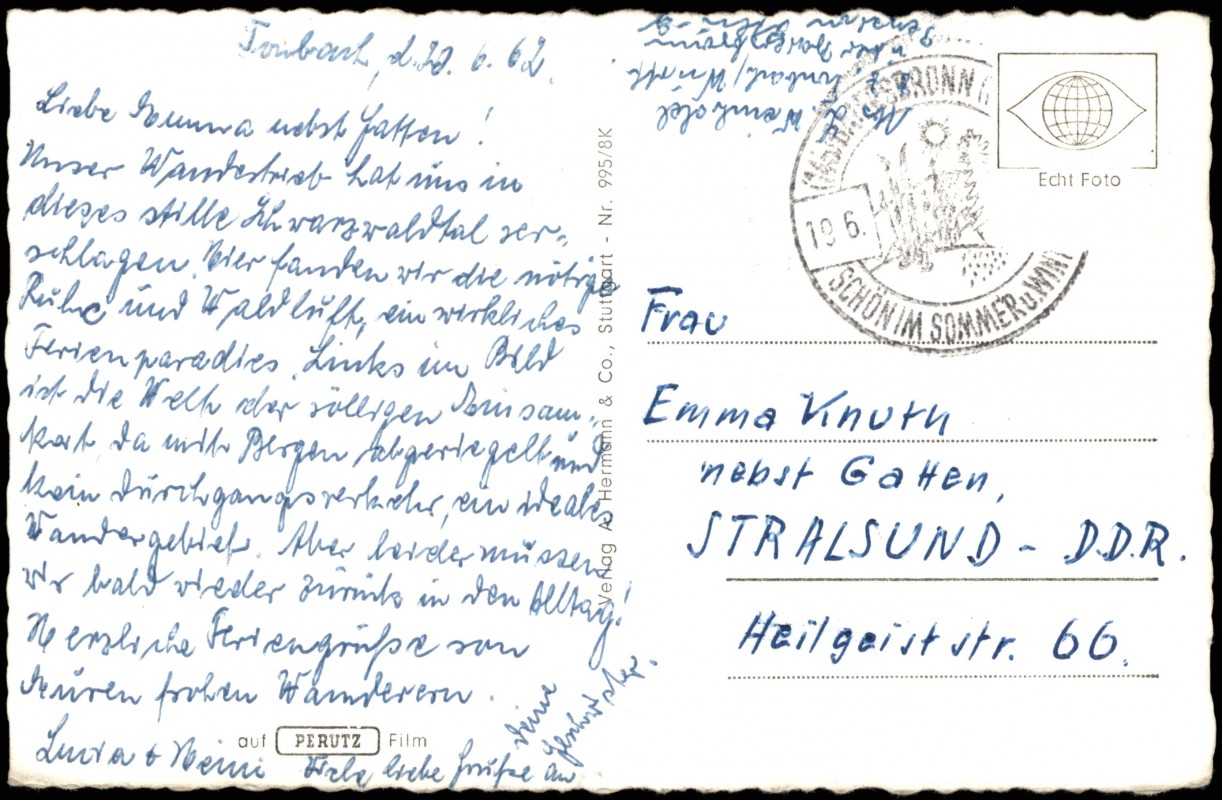 Tonbach, d. 20. 6. 62.
Liebe Emma nebst Gatten!
Unser Wandertrieb hat uns in
dieses stille Schwarzwaldtal ver-
schlagen. Hier fanden wir die nötige
Ruhe und Waldluft, ein wirkliches
Ferienparadies. Links im Bild
ist die Welt der völligen Einsam-
keit, da mit Bergen abgeriegelt und
kein Durchgangsverkehr, ein ideales
Wandergebiet. Aber leider müssen
wir bald wieder zurück in den Alltag!
Herzliche Feriengrüße von
Euren frohen Wanderern.
Heini Viele liebe Grüße an
Deine
Geschwister.
auf PERUTZ Film
Verlag A. Hermann & Co., Stuttgart - Nr. 995/8K
Tonbach/Württ
über Baiersbronn
Pension
BRONN
19.6.
SCHÖN IM SOMMER U. WINT
Echt Foto
Frau
Emma Knuth
nebst Gatten,
STRALSUND - D.D.R.
Heilgeiststr. 66.